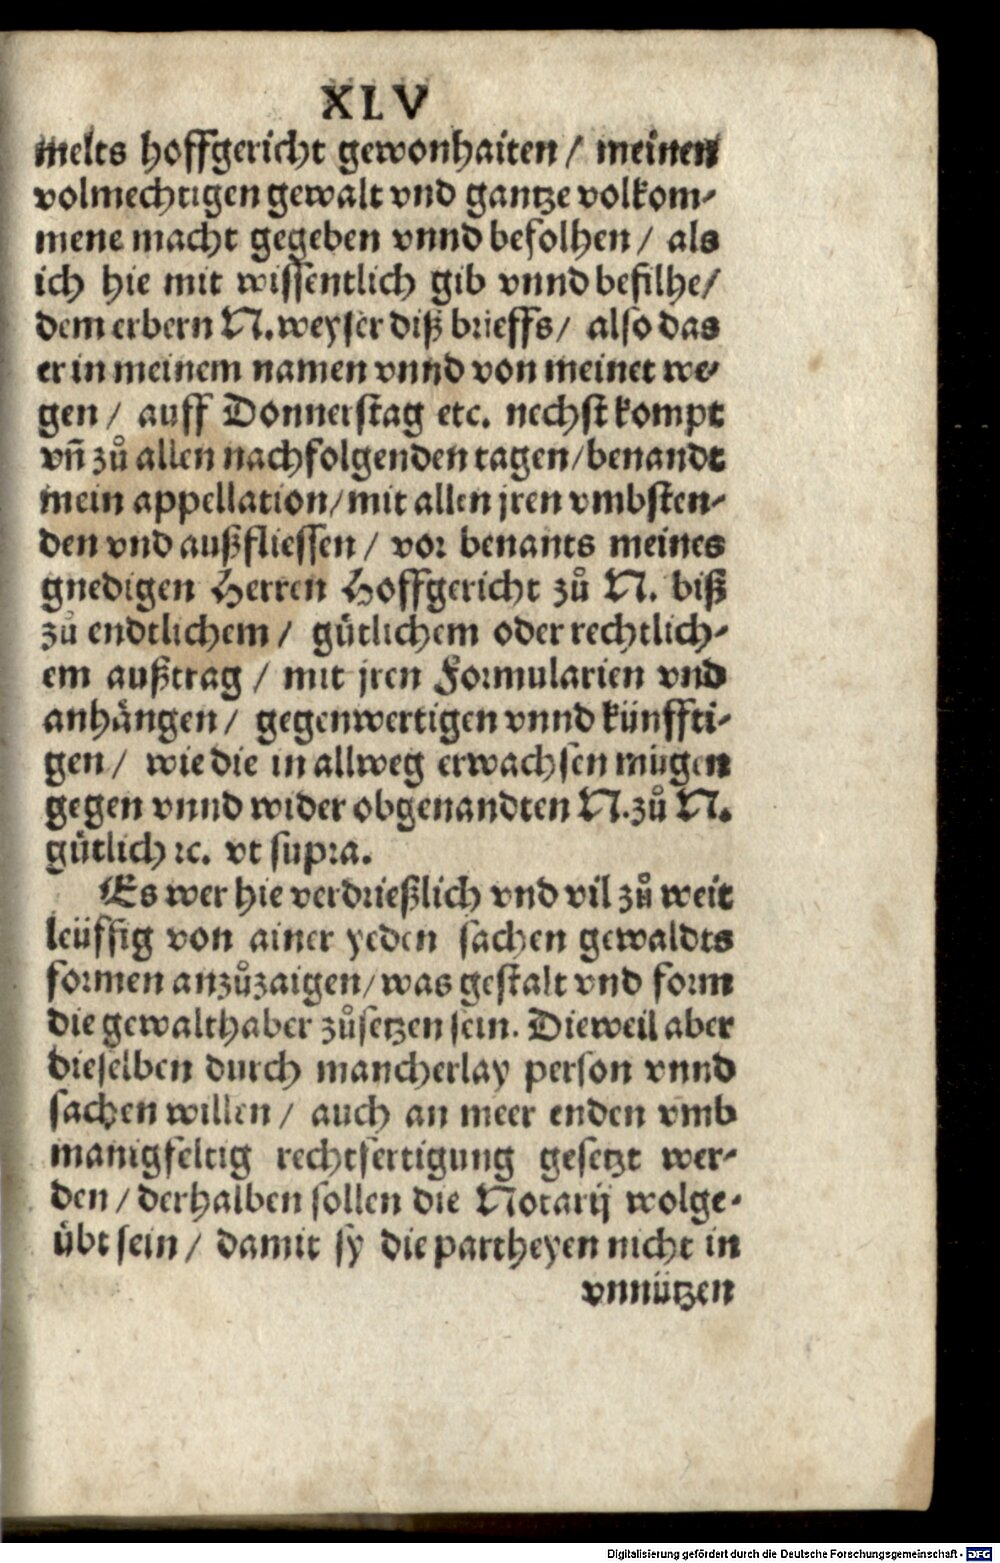 XLV
melts hoffgericht gewonhaiten / meinen
volmechtigen gewalt vnd gantze volkom-
mene macht gegeben vnnd befolhen / als
ich hie mit wissentlich gib vnnd befilhe /
dem erbern N. weyser diß brieffs / also das
er in meinem namen vnnd von meinet we-
gen / auff Donnerstag etc. nechst kompt
vn̄ zů allen nachfolgenden tagen / benandt
mein appellation / mit allen jren vmbsten-
den vnd außfliessen / vor benants meines
gnedigen Herren Hoffgericht zů N. biß
zů endtlichem / gütlichem oder rechtlich-
em außtrag / mit jren Formularien vnd
anhängen / gegenwertigen vnnd künffti-
gen / wie die in allweg erwachsen mügen
gegen vnnd wider obgenandten N. zů N.
gütlich ꝛc. vt supra.
Es wer hie verdrießlich vnd vil zů weit
leüffig von ainer yeden sachen gewaldts
formen anzůzaigen / was gestalt vnd form
die gewalthaber zůsetzen sein. Dieweil aber
dieselben durch mancherlay person vnnd
sachen willen / auch an meer enden vmb
manigfeltig rechtfertigung gesetzt wer-
den / derhalben sollen die Notarij wolge-
übt sein / damit sy die partheyen nicht in
vnnützen
Digitalisierung gefördert durch die Deutsche Forschungsgemeinschaft - DFG